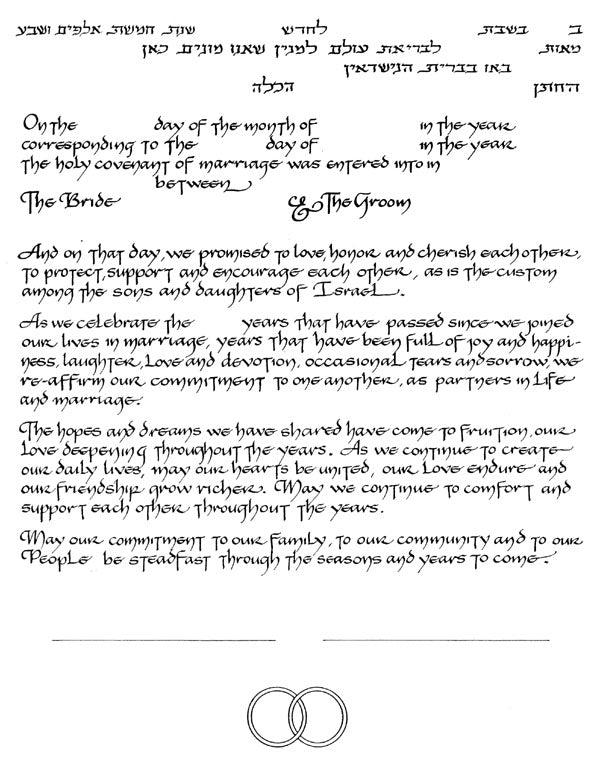 ב בשבת לחדש שנת חמשת אלפים ושבע
מאות לבריאת עולם למנין שאנו מונים כאן
באו בברית הנישואין
החותן הכלה
On the day of the month of in the year
corresponding to the day of in the year
the holy covenant of marriage was entered into in
between
The Bride & The Groom
And on that day, we promised to love, honor and cherish each other,
to protect, support and encourage each other, as is the custom
among the sons and daughters of Israel.
As we celebrate the years that have passed since we joined
our lives in marriage, years that have been full of joy and happi-
ness, laughter, love and devotion, occasional tears and sorrow, we
re-affirm our commitment to one another, as partners in life
and marriage.
The hopes and dreams we have shared have come to fruition, our
love deepening throughout the years. As we continue to create
our daily lives, may our hearts be united, our love endure and
our friendship grow richer. May we continue to comfort and
support each other throughout the years.
May our commitment to our family, to our community and to our
People be steadfast through the seasons and years to come.